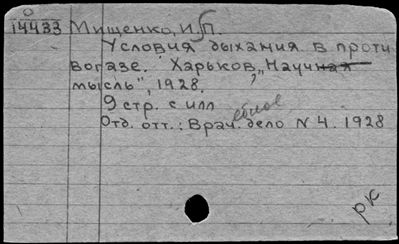 0
14433 Мищенко, И.П.
Условия дыхания в проти
вогазе. Харьков, "Научная
мысль", 1928.
9 стр. с илл
Отд. отт.: Врачебное дело N 4. 1928
рк